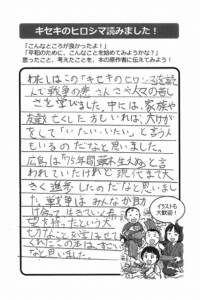 キセキのヒロシマ読みました！
「こんなところが良かったよ！」
「平和のために、こんなことを始めてみようかな？」
思ったこと、考えたことを、本の原作者に伝えてみよう！
わたしはこの「キセキのヒロシマ」を読
んで戦争の悲さや人々の苦し
さを学びました。中には、家族や
友戯
亡くした方もいれば、大けが
をして「いたい、いたい」と言う人
もいるのだなと思いました。
広島は「75年間草木生えぬ」と言
われていたけれど現代まで大
きく進歩したのだなと思いまし
た。戦争はみんなが助
け合って生きていく
を持ったという大
切なことを
くれたこの本は、すごい
なと思いました。
イラストも
大歓迎！